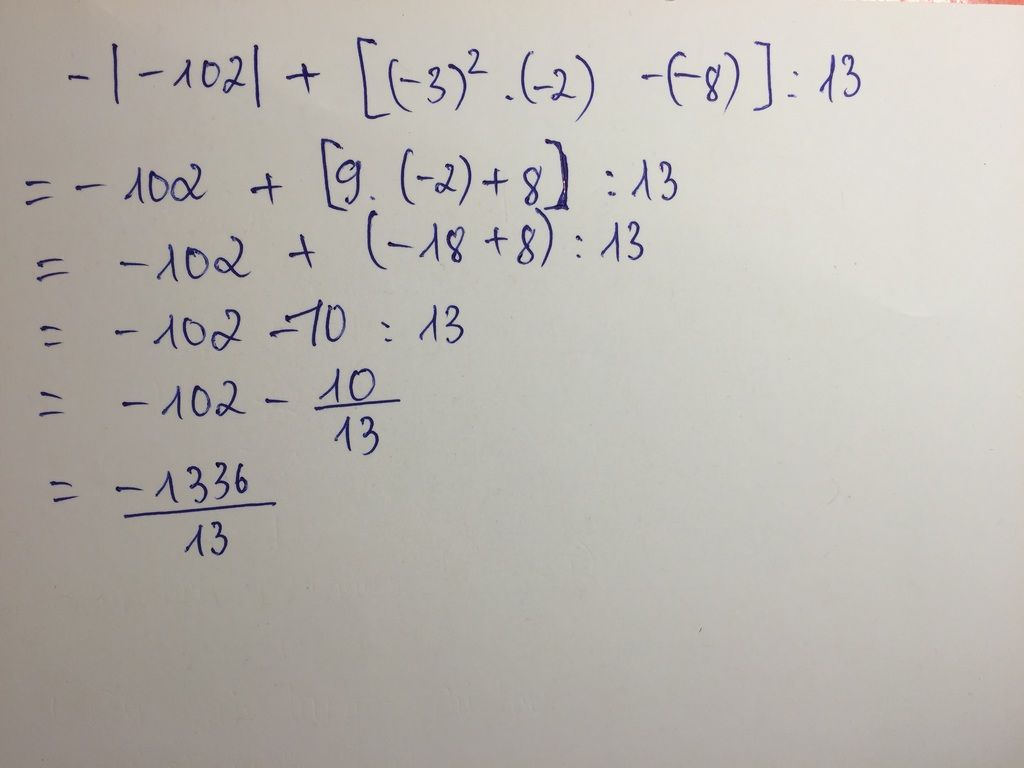 - | -102 | + [(-3)² . (-2) - (-8)] : 13
= - 102 + [9 . (-2) + 8] : 13
= -102 + (-18 + 8) : 13
= -102 -10 : 13
= -102 - 10/13
= -1336/13